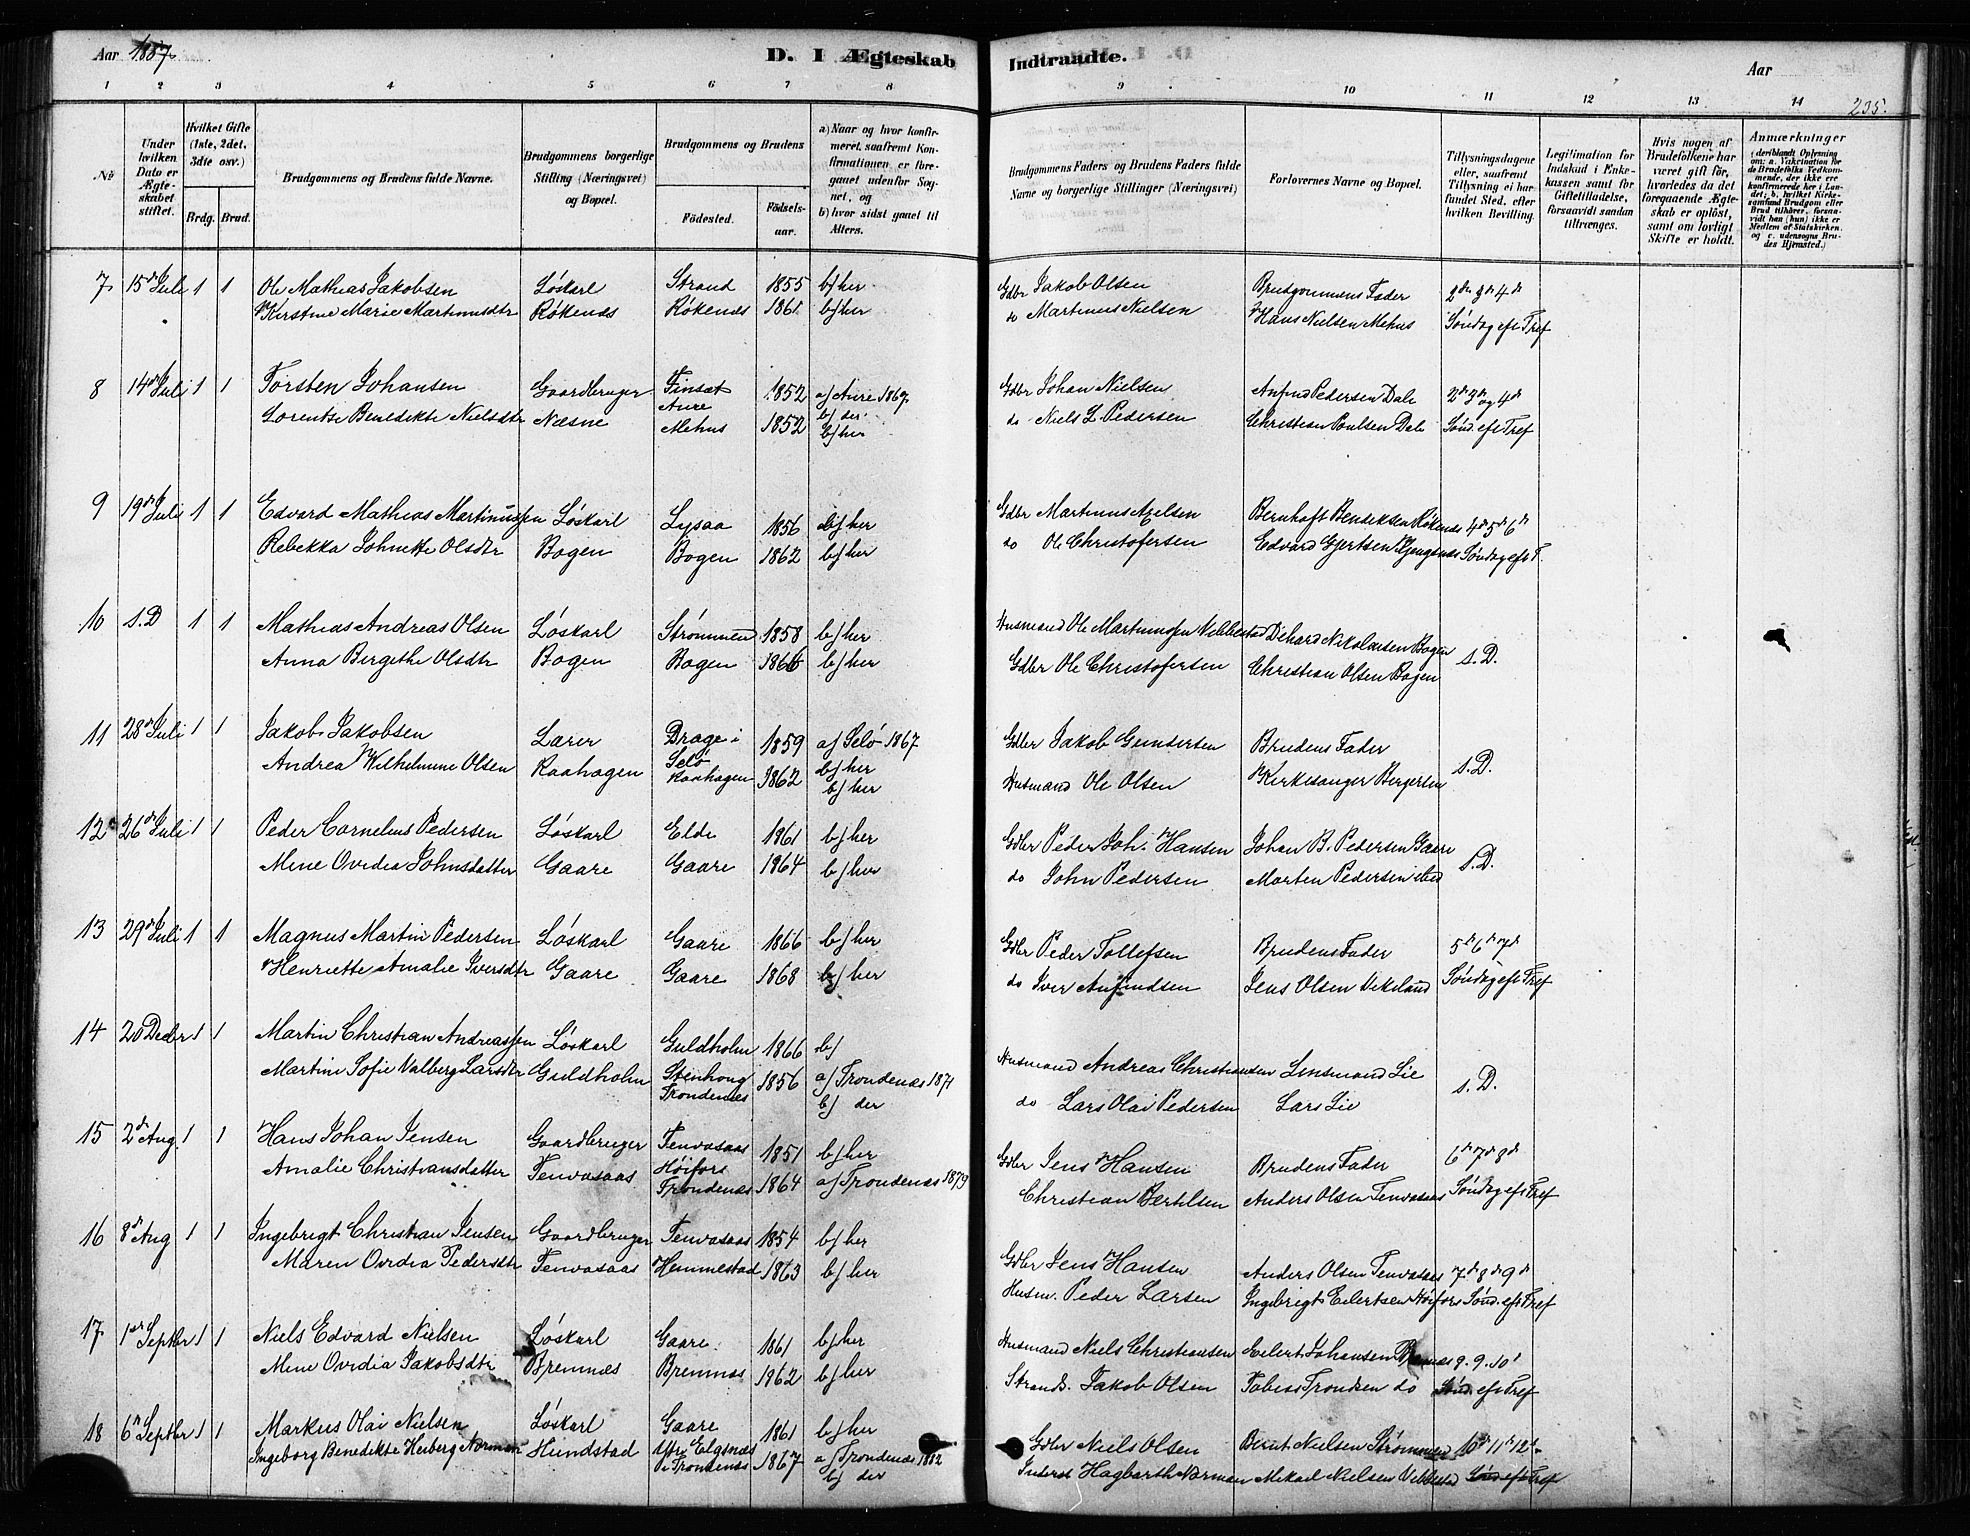 Aar 1887.
D. I Ægteskab Indtraadte.
Aar
235.
1 2 3 4 5 6 7 8 9 10 11 12 13 14
No
Under hvilken Dato er Ægteskabet stiftet.
Hvilket Gifte (1ste, 2det, 3die osv.)
Brdg. Brud.
Brudgommens og Brudens fulde Navne.
Brudgommens borgerlige Stilling (Næringsvei) og Bopæl.
Brudgommens og Brudens
Fødested.
Fødselsaar.
a) Naar og hvor konfirmeret, saafremt Konfirmationen er foregaaet udenfor Sognet, og
b) hvor sidst gaaet til Alters.
Brudgommens Faders og Brudens Faders fulde Navne og borgerlige Stillinger (Næringsvei)
Forlovernes Navne og Bopæl.
Tillysningsdagene eller, saafremt Tillysning ei har fundet Sted, efter hvilken Bevilling.
Legitimation for Indskud i Enkekassen samt for Giftetilladelse, forsaavidt saadan tiltrænges.
Hvis nogen af Brudefolkene har været gift før, hvorledes da det foregaaende Ægteskab er opløst, samt om lovligt Skifte er holdt.
Anmærkninger
(deriblandt Oplysning om: a. Vakcination for de Brudefolks Vedkommende, der ikke ere konfirmerede her i Landet; b. hvilket Kirkesamfund Brudgom eller Brud tilhører, forsaavidt han (hun) ikke er Medlem af Statskirken, og c. udensogns Brudes Hjemsted.)
7 15de Juli 1 1 Ole Mathias Jakobsen Løskarl Strand 1855 b/ her Gdbr Jakob Olsen Brudgommens Fader 2de 3de 4de
Kirstine Marie Martinusdtr Røkenæs Røkenæs 1861 b/ her do Martinus Nielsen Hans Nielsen Mehus Søndag eft Tref
8 14de Juli 1 1 Torsten Johansen Gaardbruger Finsæt Aure 1852 a/ Aure 1867. b/ der. Gdbr Johan Nielsen Pedersen Dale 2de 3de og 4de
Lorentse Benedikte Nielsdtr Næsne Mehus 1852 b/ her do Niels L. Pedersen Christian Poulsen Dale Sønd. eft Tref
9 19de Juli 1 1 Edvard Mathias Martinussen Løskarl Lysaa 1856 b/ her Gdbr Martinus Axelsen Bernhoft Bendiksen Røkenæs 4de 5de 6de
Rebekka Johnette Olsdtr Bogen Bogen 1862 b/ her do Ole Christofersen Edvard Gjertsen Søndag eft T.
10 s. D 1 1 Mathias Andreas Olsen Løskarl Strømmen 1858 b/ her Husmand Ole Martinussen Vebbestad Dihard Nikolaisen Bogen s. D.
Anna Bergithe Olsdtr Bogen Bogen 1866 b/ her Gdbr Ole Christofersen Christian Olsen Bogen
11 28de Juli 1 1 Jakob Jakobsen Lærer Drage i Selø 1859 a/ Selø 1867 b/ her Gdbr Jakob Gundersen Brudens Fader s. D.
Andrea Wilhelmine Olsen Raahagen Raahagen 1862 b/ her Husmand Ole Olsen Kirkesanger Bergersen
12 26de Juli 1 1 Peder Cornelius Pedersen Løskarl Elde 1861 b/ her Gdbr Peder Joh. Hansen Johan B. Pedersen Gaare s. D.
Mine Ovidia Johnsdatter Gaare Gaare 1864 b/ her do John Pedersen Morten Pedersen ibid
13 29de Juli 1 1 Magnus Martin Pedersen Løskarl Gaare 1866 b/ her Gdbr Peder Tollefsen Brudens Fader 5de 6de 7de
Henriette Amalie Iversdtr Gaare Gaare 1868 b/ her do Iver Anfindsen Jens Olsen Vikeland Søndag eft Tref
14 20 Decbr 1 1 Martin Christian Andreassen Løskarl Guldholm 1866 b/ Husmand Andreas Christiansen Lensmand Lie s. D.
Martine Sofie Valberg Larsdtr Guldholm Stenhoug Trondenæs 1856 a/ Trondenæs 1871 b/ der do Lars Olai Pedersen Lars Lie
15 2de Aug. 1 1 Hans Johan Jensen Gaardbruger Tenvasaas 1851 b/ her Gdbr Jens Hansen Brudens Fader 6te 7de 8de
Amalie Christiansdatter Tenvasaas Høifors Trondenæs 1864 a/ Trondenæs 1879 Christian Bertilsen Anders Olsen Tenvasaas Søndag eft Tref
16 8de Aug 1 1 Ingebrigt Christian Jensen Gaardbruger Tenvasaas 1854 b/ her Gdbr Jens Hansen Anders Olsen Tenvasaas 7de 8de 9de
Maren Ovidia Pedersdtr Tenvasaas Hemmestad 1863 b/ her Husm. Peder Larsen Ingebrigt Eilertsen Høifors Sønd. eft Tref
17 1ste Septbr 1 1 Niels Edvard Nielsen Løskarl Gaare 1861 b/ her Husmand Niels Christiansen Eilert Johansen Bremnæs 8. 9. 10de
Mine Ovidia Jakobsdtr Bremnæs Bremnæs 1862 b/ her Strands. Jakob Olsen Tobias Trondsen do Sønd eft Tref
18 6te Septbr 1 1 Markus Olai Nielsen Løskarl Gaare 1861 b/ her Gdbr Niels Olsen Bernt Nielsen Strømmen 10de 11te 12te
Ingeborg Benedikte Heiberg Norman Hundstad Ytre Elgsnæs i Trondenæs 1867 a/ Trondenæs 1882 b/ der Inderst Hagbarth Norman Mikael Nielsen Vebbestad Sønd eft Tref